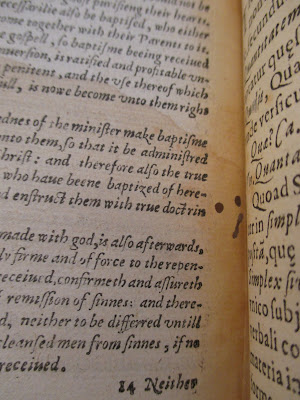 purifieng their hearts.
be baptised, who either
come together with their Parents to it.
gospell, so baptisme beeing receiued
is ratified and profitable vn-
penitent, and the vse thereof which
is nowe become vnto them righ
dnes of the minister make baptisme
nto them, so that it be administred
hrist: and therefore also the true
who haue beene baptized of here-
nd enstruct them with true doctrin
made with god, is also afterwards,
ly firme and of force to the repen-
receiued, confirmeth and assureth
remission of sinnes: and there-
d, neither to be differred vntill
cleansed men from sinnes, if no
receiued.
14 Neither
secundu
antitatem
catur quę
de versicu
Quę? Ca
Quanta
Quoad S
at in simp
posita, quę
simplex si
mico subij
verbali co
materia i